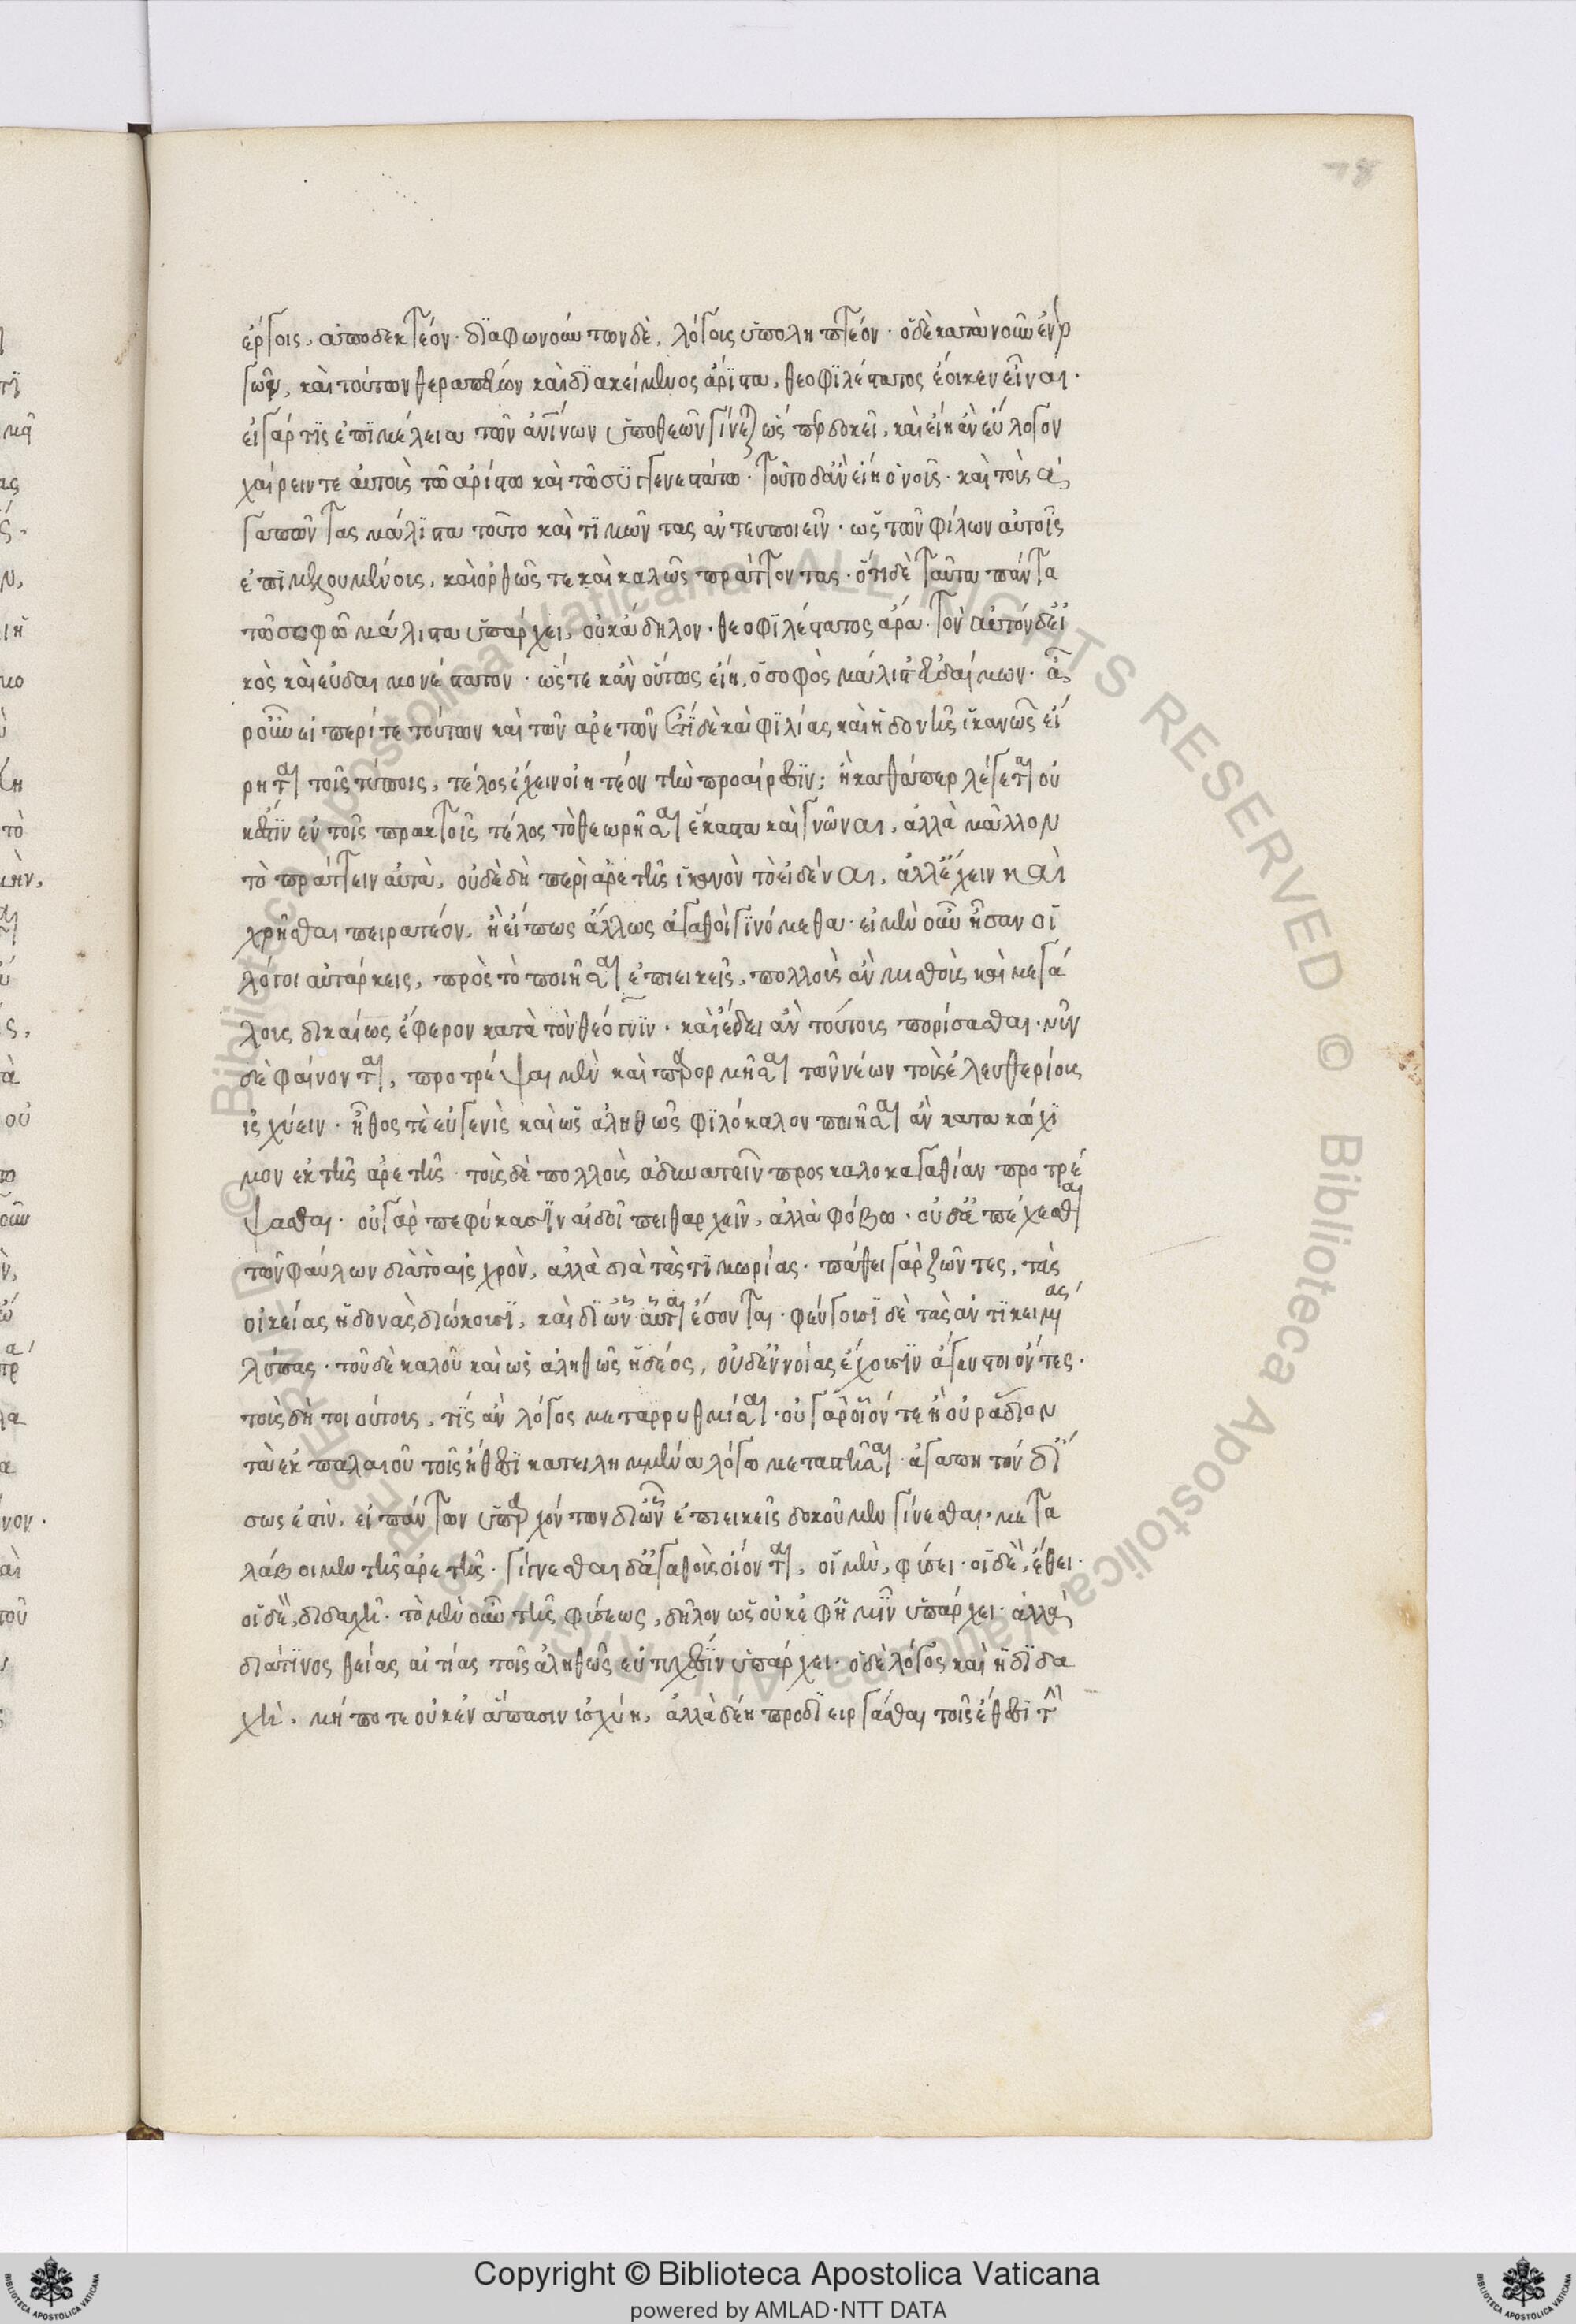 έργοις, αποδεκτέον· διαφωνούντων δὲ, λόγοις ὑποληπτέον· ὁ δὲ κατὰ νοῦν ἐνερ
γῶν, καὶ τοῦτον θεραπεύων καὶ διακείμενος ἄριστα, θεοφιλέστατος ἔοικεν εἶναι·
εἰ γάρ τις ἐπιμέλεια τῶν ἀνθρωπίνων ὑπὸ θεῶν γίνεται ὥσπερ δοκεῖ, καὶ εἴη ἂν εὔλογον
χαίρειν τε αὐτοὺς τῷ ἀρίστῳ καὶ τῷ συγγενεστάτῳ· τοῦτο δ' ἂν εἴη ὁ νοῦς· καὶ τοὺς ἀ
γαπῶντας μάλιστα τοῦτο καὶ τιμῶντας ἀντευποιεῖν· ὡς τῶν φίλων αὐτοῖς
ἐπιμελουμένους, καὶ ὀρθῶς τε καὶ καλῶς πράττοντας· ὅτι δὲ ταῦτα πάντα
τῷ σοφῷ μάλιστα ὑπάρχει, οὐκ ἄδηλον· θεοφιλέστατος ἄρα· τὸν αὐτὸν δ' εἰ
κὸς καὶ εὐδαιμονέστατον· ὥστε κἂν οὕτως εἴη, ὁ σοφὸς μάλιστ' εὐδαίμων· ἆ
ρ' οὖν εἰ περί τε τούτων καὶ τῶν ἀρετῶν ἔτι δὲ καὶ φιλίας καὶ ἡδονῆς ἱκανῶς εἴ
ρηται τοῖς τύποις, τέλος ἔχειν οἰητέον τὴν προαίρεσιν; ἢ καθάπερ λέγεται οὐ
κ ἔστιν ἐν τοῖς πρακτοῖς τέλος τὸ θεωρῆσαι ἕκαστα καὶ γνῶναι, ἀλλὰ μᾶλλον
τὸ πράττειν αὐτὰ, οὐδὲ δὴ περὶ ἀρετῆς ἱκανὸν τὸ εἰδέναι, ἀλλ' ἔχειν καὶ
χρῆσθαι πειρατέον, ἢ εἴ πως ἄλλως ἀγαθοὶ γινόμεθα· εἰ μὲν οὖν ἦσαν οἱ
λόγοι αὐτάρκεις, πρὸς τὸ ποιῆσαι ἐπιεικεῖς, πολλοὺς ἂν μισθοὺς καὶ μεγά
λους δικαίως ἔφερον κατὰ τὸν θέογνιν· καὶ ἔδει ἂν τούτους πορίσασθαι· νῦν
δὲ φαίνονται, προτρέψαι μὲν καὶ παρορμῆσαι τῶν νέων τοὺς ἐλευθερίους
ἰσχύειν· ἦθός τε εὐγενὲς καὶ ὡς ἀληθῶς φιλόκαλον ποιῆσαι ἂν κατακώχι
μον ἐκ τῆς ἀρετῆς· τοὺς δὲ πολλοὺς ἀδυνατεῖν προς καλοκαγαθίαν προτρέ
ψασθαι· οὐ γὰρ πεφύκασιν αἰδοῖ πειθαρχεῖν, ἀλλὰ φόβῳ· οὐδ' ἀπέχεσθαι
τῶν φαύλων διὰ τὸ αἰσχρὸν, ἀλλὰ διὰ τὰς τιμωρίας· πάθει γὰρ ζῶντες, τὰς
οἰκείας ἡδονὰς διώκουσι, καὶ δι' ὧν αὗται ἔσονται· φεύγουσι δὲ τὰς ἀντικειμένας
λύπας· τοῦ δὲ καλοῦ καὶ ὡς ἀληθῶς ἡδέος, οὐδ' ἔννοίας ἔχουσιν ἄγευστοι ὄντες·
τοὺς δὴ τοιούτους, τίς ἂν λόγος μεταρρυθμίσαι· οὐ γὰρ οἷόν τε ἢ οὐ ράδιον
τὰ ἐκ παλαιοῦ τοῖς ἤθεσι κατειλημμένα λόγῳ μεταστῆσαι· ἀγαπητὸν δ' ἴ
σως ἐστὶν, εἰ πάντων ὑπαρχόντων δι' ὧν ἐπιεικεῖς δοκοῦμεν γίνεσθαι, μετα
λάβοιμεν τῆς ἀρετῆς· γίγνεσθαι δ' ἀγαθοὺς οἴονται, οἱ μὲν, φύσει· οἱ δὲ, ἔθει·
οἱ δὲ, διδαχῇ· τὸ μὲν οὖν τῆς φύσεως, δῆλον ὡς οὐκ ἐφ' ἡμῖν ὑπάρχει· ἀλλὰ
διά τινος θείας αἰτίας τοῖς ἀληθῶς εὐτυχέσιν ὑπάρχει· ὁ δὲ λόγος καὶ ἡ διδα
χὴ, μή ποτε οὐκ ἐν ἅπασιν ἰσχύη, ἀλλὰ δέη προδιειργάσθαι τοῖς ἔθεσι τὴν